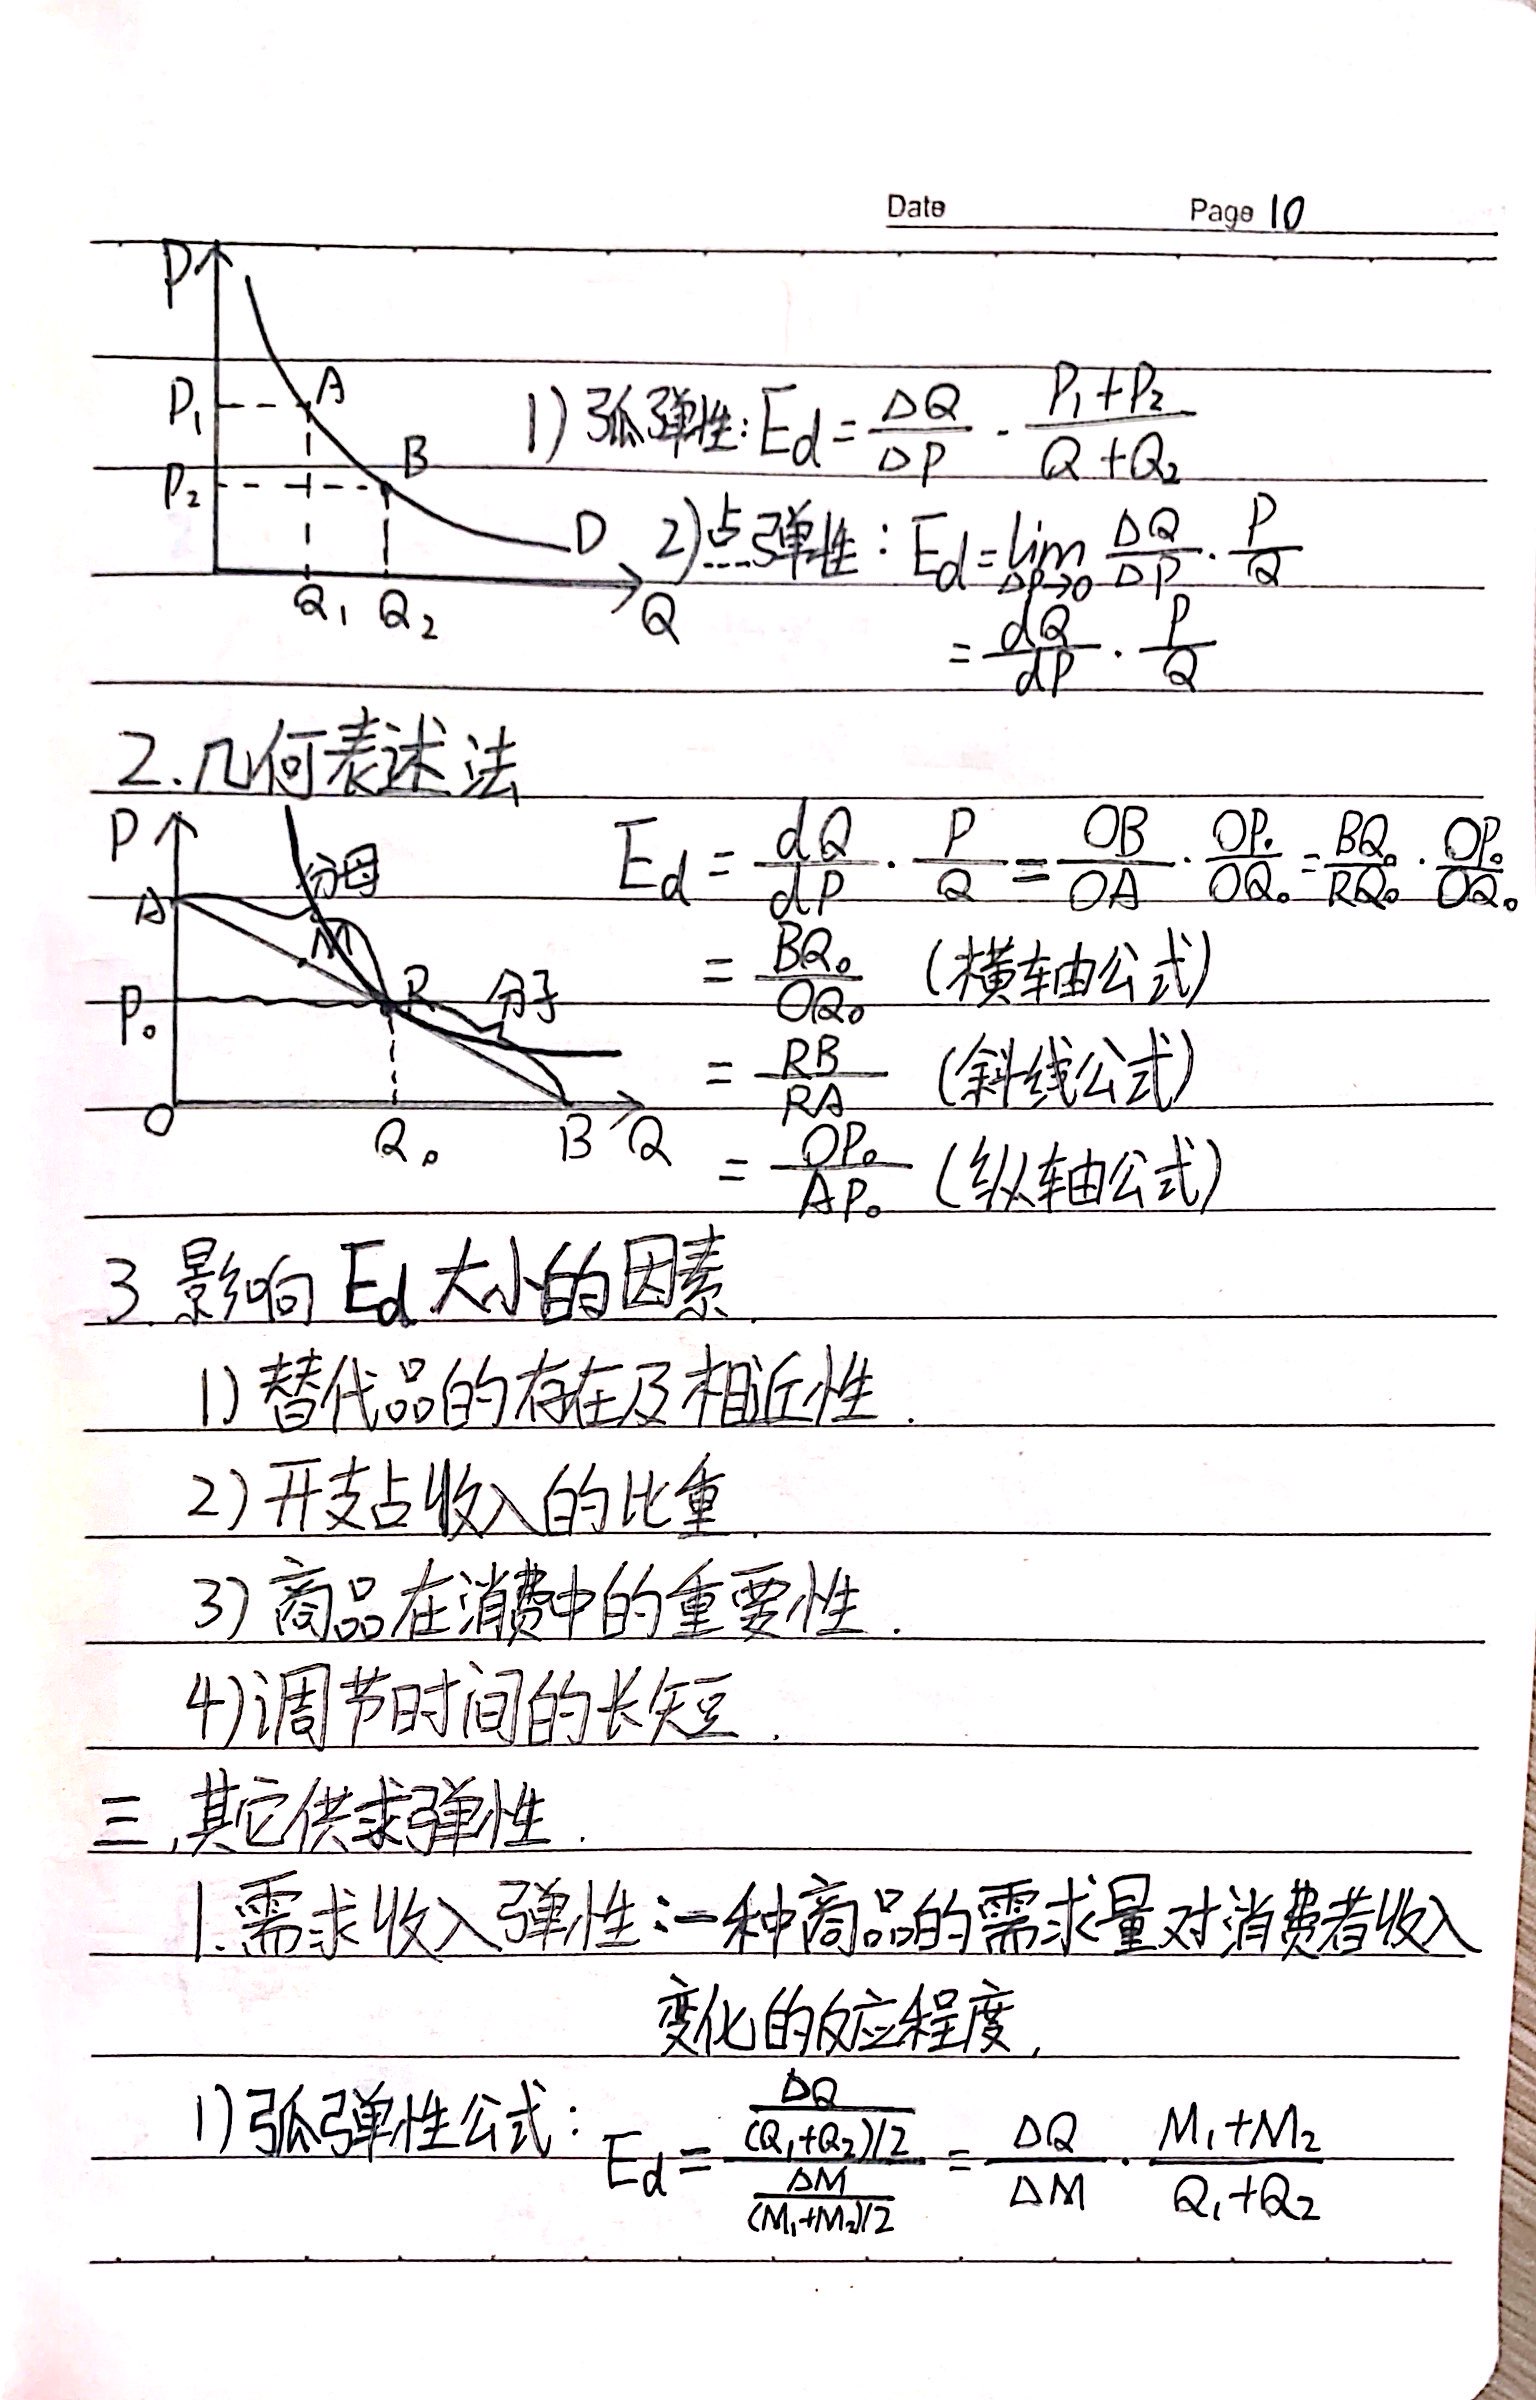 Date Page 10
P
P₁ A
P₂ B
D
Q₁ Q₂ Q
1) 弧弹性: Ed = ΔQ/ΔP · (P₁+P₂)/(Q+Q₂)
2) 点弹性: Ed = lim(ΔP→0) ΔQ/ΔP · P/Q
= dQ/dP · P/Q
2. 几何表述法
P
A 分母
M
P₀ R 分子
O Q₀ B Q
Ed = dQ/dP · P/Q = OB/OA · OP₀/OQ₀ = BQ₀/RQ₀ · OP₀/OQ₀
= BQ₀/OQ₀ (横轴公式)
= RB/RA (斜线公式)
= OP₀/AP₀ (纵轴公式)
3. 影响 Ed 大小的因素.
1) 替代品的存在及相近性.
2) 开支占收入的比重.
3) 商品在消费中的重要性.
4) 调节时间的长短.
三. 其它供求弹性.
1. 需求收入弹性: 一种商品的需求量对消费者收入
变化的反应程度.
1) 弧弹性公式: Ed = (ΔQ/((Q₁+Q₂)/2))/(ΔM/((M₁+M₂)/2)) = ΔQ/ΔM · (M₁+M₂)/(Q₁+Q₂)